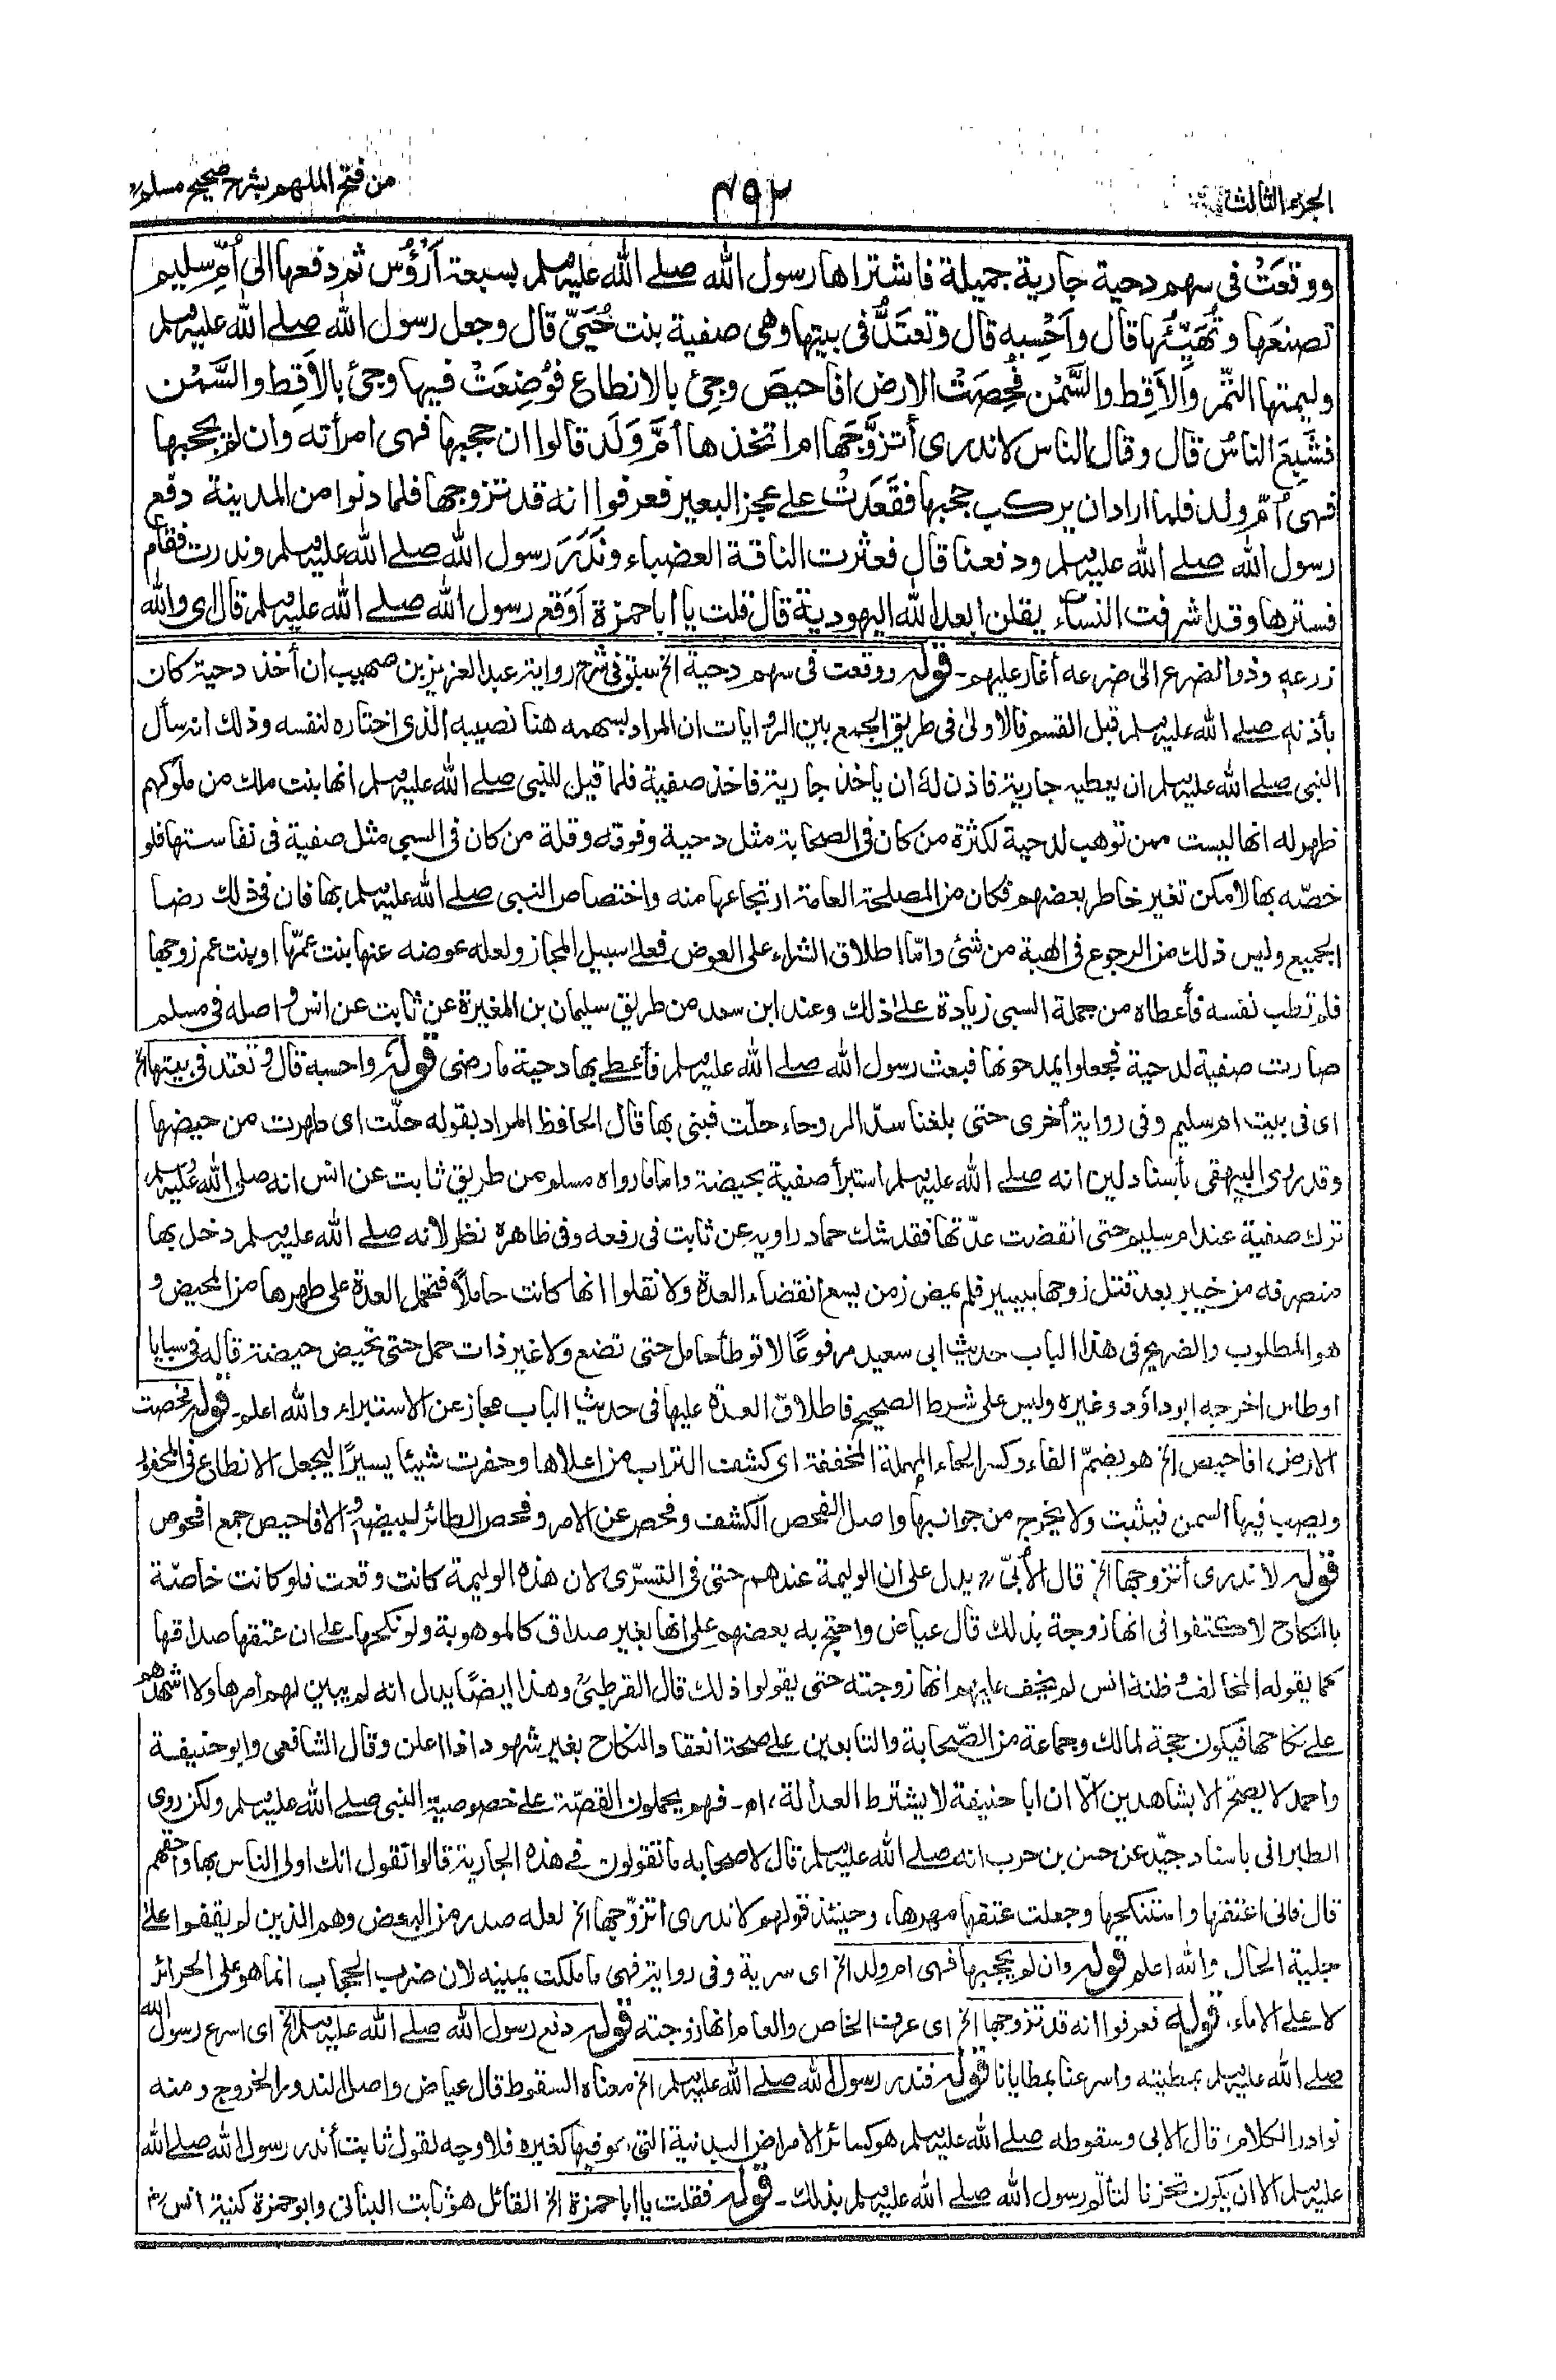 الجزء الثالث
٤٩٢
من فتح الملهم بشرح صحيح مسلم
ووقَعَتْ فى سهم دحية جارية جميلة فاشتراها رسول الله صلے الله عليه وسلم بسبعة اَرْؤُس ثم دفعها الى اُمّ سليم
تصنعَها وتُهَيِّئُها قال واَحْسِبه قال وتعتَدُّ فى بيتها وهى صفية بنت حُيَىّ قال وجعل رسول الله صلے الله عليه وسلم
وليمتها التَّمر والاَقِط والسَّمْن فُحِصَتْ الارض افاحيصَ وجِئ بالانطاع فوُضِعَتْ فيها وجئ بالاَقِط والسَّمْن
فشَبِعَ الناسُ قال وقال الناس لا ندرى أتزوَّجَها ام اتخذها اُمَّ وَلَد قالوا ان حجبها فهى امرأته وان لم يحجبها
فهى اُمّ ولد فلما اراد ان يركب حجبها فقَعَدَتْ على عجز البعير فعرفوا انه قد تزوجها فلما دنوا من المدينة دفع
رسول الله صلے الله عليه وسلم ودفعنا قال فعثرت الناقة العضباء ونَدَرَ رسول الله صلے الله عليه وسلم وندرت فقام
فسترها وقد اشرفت النساء يقلن ابعد الله اليهودية قال قلت يا ابا حمزة اَوَقع رسول الله صلے الله عليه وسلم قال اى والله
زرعه وذو الضرع الى ضرعه أغار عليهم- قوله ووقعت فى سهم دحية الخ سبق فى شرح رواية عبد العزيز بن صهيب ان أخذ دحية كان
بأذنه صلے الله عليه وسلم قبل القسم فالاولىٰ فى طريق الجمع بين الروايات ان المراد بسهمه هنا نصيبه الذى اختاره لنفسه وذلك انه سأل
النبى صلے الله عليه وسلم ان يعطيه جارية فاذن له ان يأخذ جارية فاخذ صفية فلما قيل للنبى صلے الله عليه وسلم انها بنت ملك من ملوكهم
ظهر له انها ليست ممن توهب لدحية لكثرة من كان فى الصحابة مثل دحية وفوقه وقلة من كان فى السبى مثل صفية فى نفاستها فلو
خصّه بها لامكن تغير خاطر بعضهم فكان من المصلحة العامة ارتجاعها منه واختصاص النبى صلے الله عليه وسلم بها فان فى ذلك رضا
الجميع وليس ذلك من الرجوع فى الهبة من شئ وامّا اطلاق الشراء على العوض فعلى سبيل المجاز ولعله عوضه عنها بنت عمّها او بنت عم زوجها
فلم تطب نفسه فأعطاه من جملة السبى زيادة على ذلك وعند ابن سعد من طريق سليمان بن المغيرة عن ثابت عن انس واصله فى مسلم
صارت صفية لدحية فجعلوا يمدحونها فبعث رسول الله صلے الله عليه وسلم فأعطى بها دحية ما رضى قوله واحسبه قال وتعتد فى بيتها الخ
اى فى بيت ام سليم وفى رواية اُخرى حتى بلغنا سدّ الروحاء حلّت فبنى بها قال الحافظ المراد بقوله حلّت اى طهرت من حيضها
وقد روى البيهقى بأسناد لين انه صلے الله عليه وسلم استبرأ صفية بحيضة واما ما رواه مسلم من طريق ثابت عن انس انه صلى الله عليه وسلم
ترك صفية عند ام سليم حتى انقضت عدّتها فقد شك حماد راويه عن ثابت فى رفعه وفى ظاهره نظر لانه صلے الله عليه وسلم دخل بها
منصرفه من خيبر بعد قتل زوجها بيسير فلم يمض زمن يسع انقضاء العدة ولا نقلوا انها كانت حاملاً فتحمل العدة على طهرها من المحيض و
هو المطلوب والصريح فى هذا الباب حديث ابى سعيد مرفوعًا لا توطأ حامل حتى تضع ولا غير ذات حمل حتى تحيض حيضة قاله فى سبايا
اوطاس اخرجه ابو داؤد وغيره وليس على شرط الصحيح فاطلاق العدّة عليها فى حديث الباب مجاز عن الاستبراء والله اعلم- قوله فحصت
الارض افاحيص الخ هو بضمّ الفاء وكسر الحاء المهملة المخففة اى كشفت التراب من اعلاها وحفرت شيئا يسيرًا ليجعل الانطاع فى المحفور
ويصب فيها السمن فيثبت ولا يخرج من جوانبها واصل الفحص الكشف وفحص عن الامر وفحص الطائر لبيضه والافاحيص جمع افحوص
قوله لا ندرى أتزوجها الخ قال الاُبىّ يدل على ان الوليمة عندهم حتى فى التسرّى لان هذه الوليمة كانت وقعت فلو كانت خاصّة
بالنكاح لاكتفوا فى انها زوجة بذلك قال عياض واحتج به بعضهم على انها بغير صداق كالموهوبة ولو نكحها على ان عتقها صداقها
كما يقوله المخالف وظنه انس لم يخف عليهم انها زوجته حتى يقولوا ذلك قال القرطبى وهذا ايضًا يدل انه لم يبين لهم امرها ولا اشهدهم
على نكاحها فيكون حجة لمالك وجماعة من الصّحابة والتابعين على صحة انعقاد النكاح بغير شهود اذا اعلن وقال الشافعى وابو حنيفة
واحمد لا يصحّ الا بشاهدين الّا ان ابا حنيفة لا يشترط العدالة، اه- فهم يحملون القصّة على خصوصية النبى صلے الله عليه وسلم ولكن روى
الطبرانى باسناد جيّد عن حسن بن حرب انه صلے الله عليه وسلم قال لاصحابه ما تقولون فى هذه الجارية قالوا تقول انك اولى الناس بها واحقهم
قال فانى اعتقتها واستنكحها وجعلت عتقها مهرها، وحينئذ قولهم لا ندرى اتزوّجها الخ لعله صدر من البعض وهم الذين لم يقفوا على
جلية الحال والله اعلم قوله وان لم يحجبها فهى ام ولد الخ اى سرية وفى رواية فهى ما ملكت يمينه لان ضرب الحجاب انما هو على الحرائر
لا على الاماء، قوله فعرفوا انه قد تزوجها الخ اى عرف الخاص والعام انها زوجته قوله دفع رسول الله صلے الله عليه وسلم الخ اى اسرع رسول الله
صلے الله عليه وسلم بمطيته واسرعنا بمطايانا قوله فندر رسول الله صلے الله عليه وسلم الخ معناه السقوط قال عياض واصل الندور الخروج ومنه
نوادر الكلام، قال الابى وسقوطه صلے الله عليه وسلم هو كسائر الامراض البدنية التى هو فيها كغيره فلا وجه لقول ثابت أندر رسول الله صلے الله
عليه وسلم الا ان يكون تحزنا لتألم رسول الله صلے الله عليه وسلم بذلك- قوله فقلت يا ابا حمزة الخ القائل هو ثابت البنانى وابو حمزة كنية انس رض